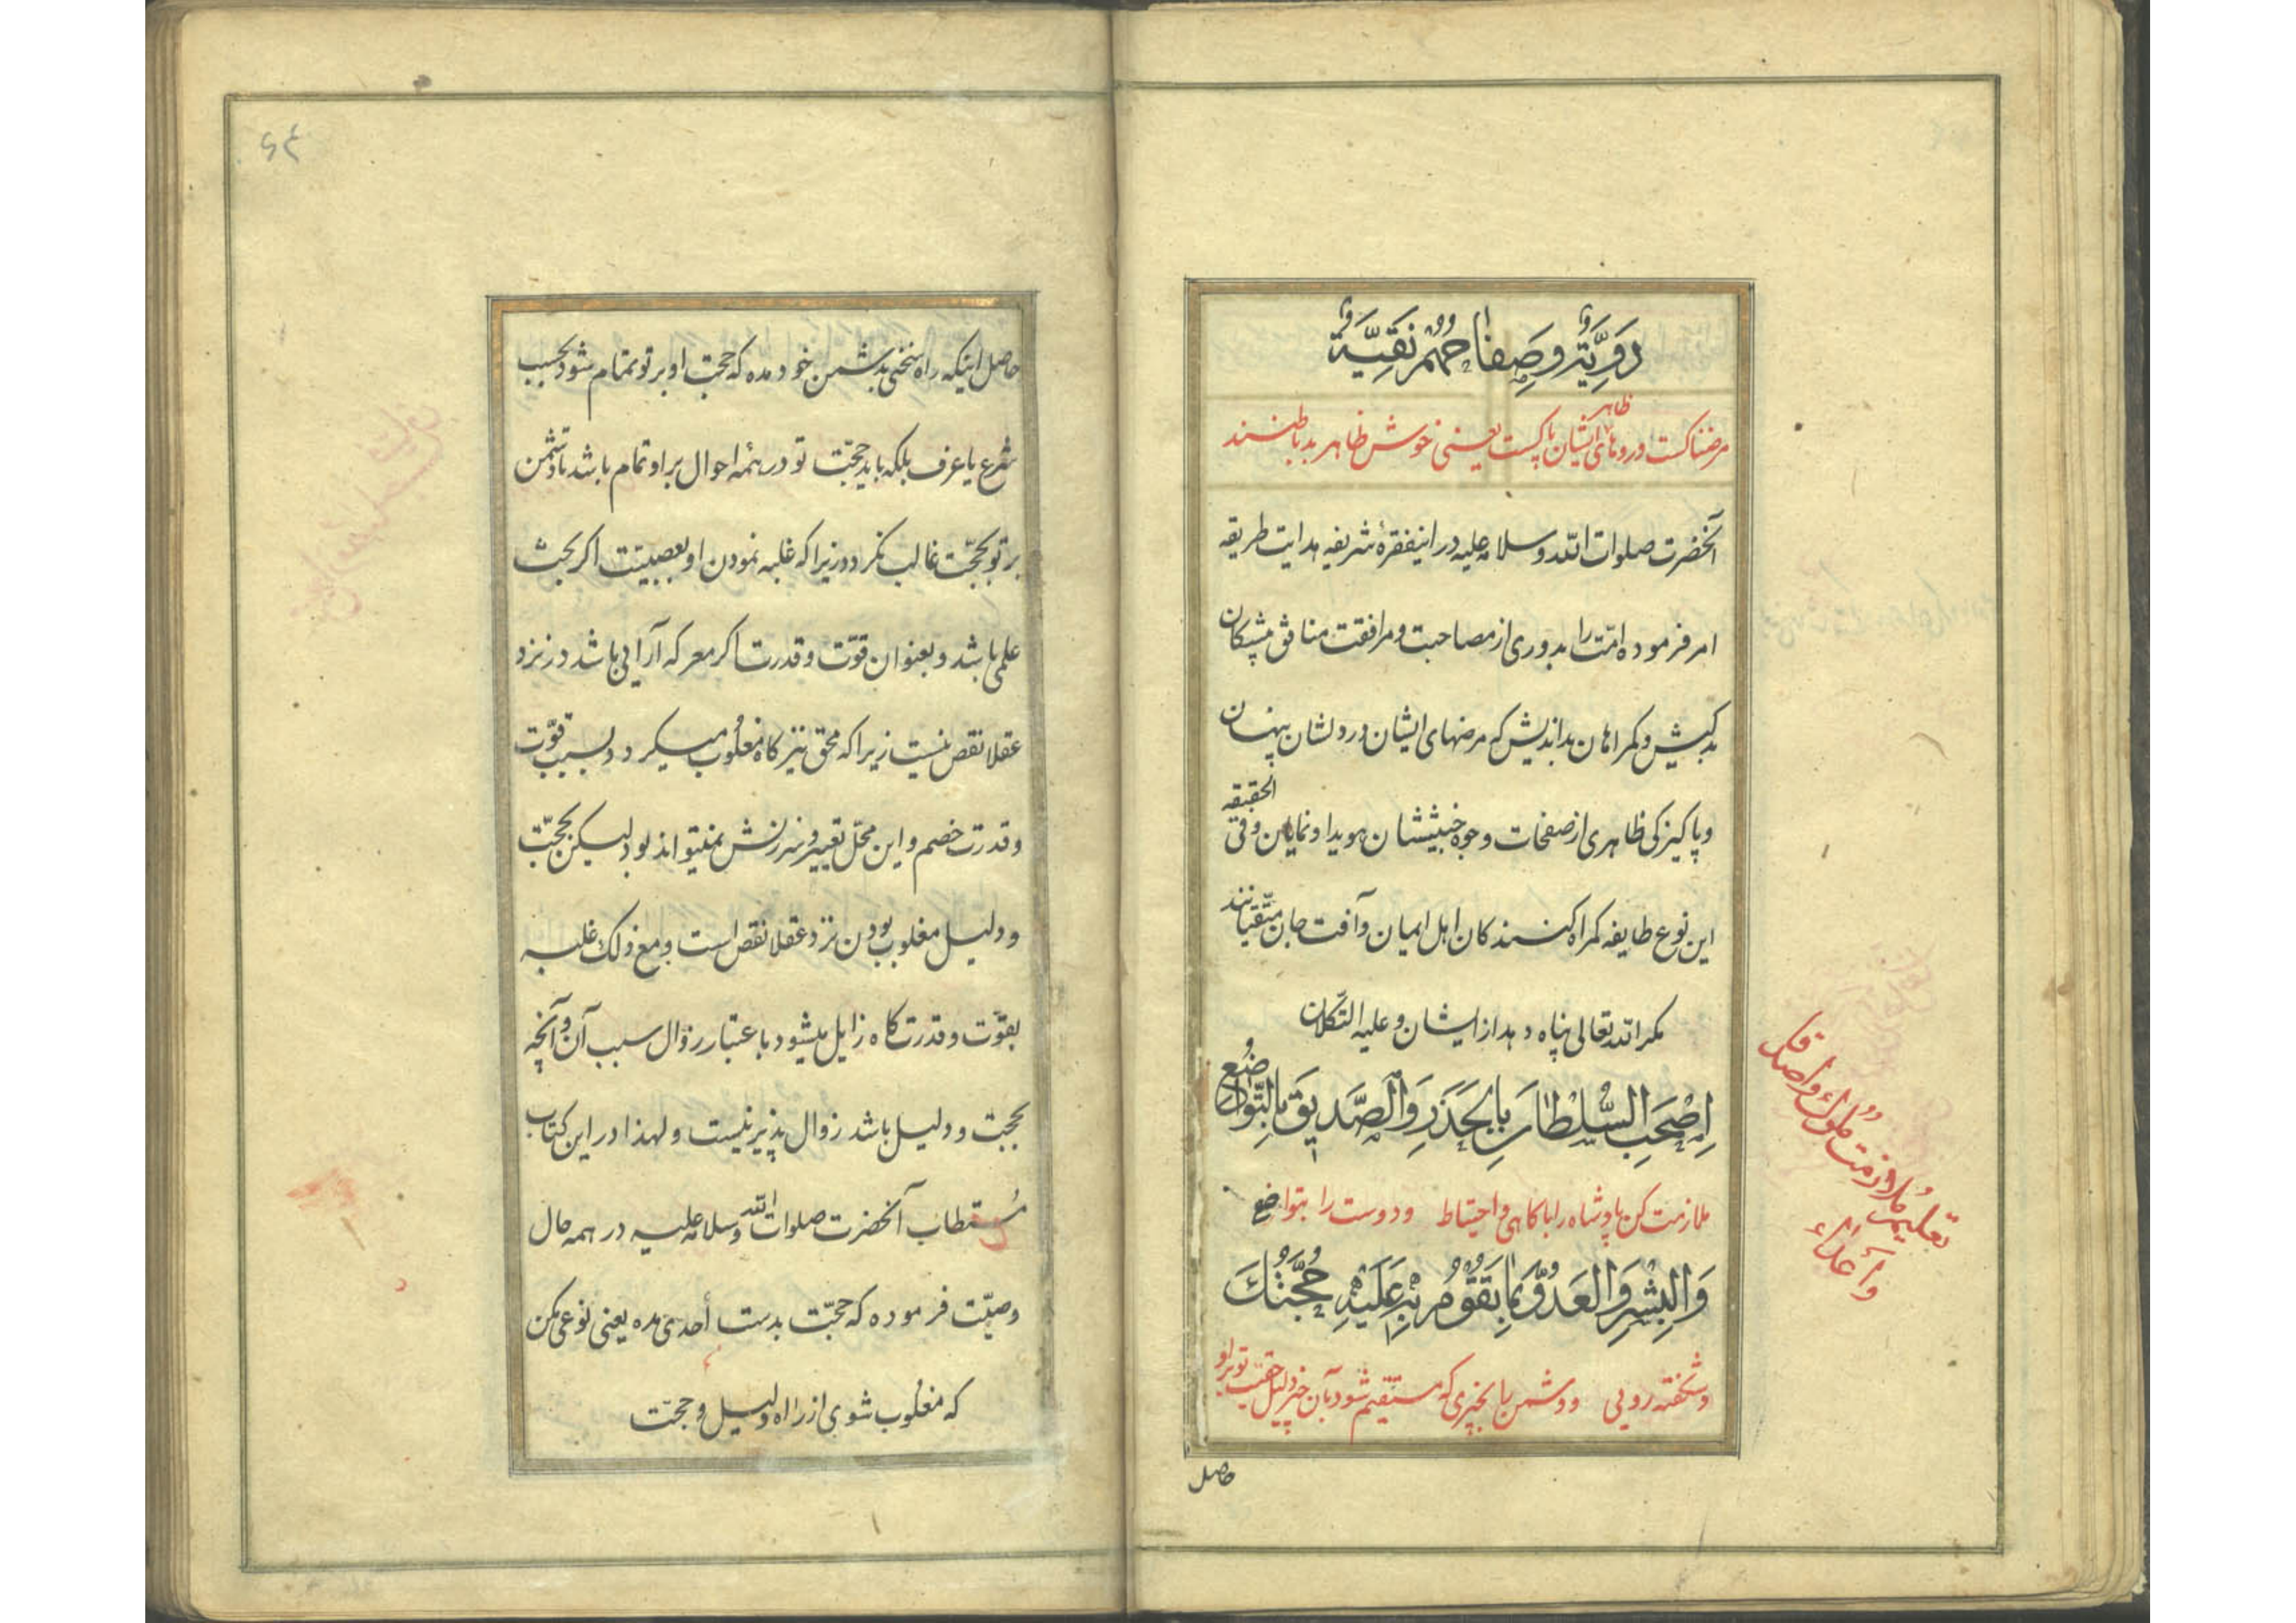 دَوِيَّةٌ وَصِفَاحُهُمْ نَقِيَّةٌ
مرضناکست و روهای ظاهر ایشان پاکست یعنی خوش ظاهر بد باطنند
آنحضرت صلوات الله و سلامه علیه در اینفقرهٔ شریفه هدایت طریقه
امر فرموده امّت را بدوری از مصاحبت و مرافقت منافق پیشکان
بدکیش و کمراهان بداندیش که مرضهای ایشان در دلشان پنهان
و پاکیزکی ظاهری از صفحات وجوه خبیثشان هویدا و نمایان و فی الحقیقه
این نوع طایفه کمراه کنندکان اهل ایمان و آفت جان متّقیانند
مکر الله تعالی پناه دهد از ایشان و علیه التّکلان
اِصْحَبِ السُّلْطَانَ بِالحَذَرِ وَالصَّدِيقَ بِالتَّوَاضُعِ
ملازمت کن پادشاه را باکاهی و احتیاط و دوست را بتواضع
وَالبِشْرِ وَالعَدُوَّ بِمَا تَقُومُ بِهِ عَلَيْهِ حُجَّتُكَ
و شکفته رویی و دشمن را بچیزی که مستقیم شود بآن چیز دلیل حقیت تو بر او
تعلیم ملازمت ملوك و اصدقاء
و أعداء
حاصل
۶۴
حاصل اینکه راه سخنی بدشمن خود مده که حجت او بر تو تمام شود بحسب
شرع یا عرف بلکه باید حجّت تو در همه احوال بر او تمام باشد تا دشمن
بر تو بحجّت غالب نکردد زیرا که غلبه نمودن او بعصبیّت اکر بحث
علمی باشد و بعنوان قوّت و قدرت اکر معرکه آرایی باشد در نزد
عقلا نقص نیست زیرا که محق نیز کاه مغلوب میکردد بسبب قوّت
و قدرت خصم و این محلّ تعییر و سرزنش نمیتواند بود لیکن بحجّت
و دلیل مغلوب بودن نزد عقلا نقص است و مع ذلك غلبه
بقوّت و قدرت کاه زایل میشود باعتبار زوال سبب آن و آنچه
بحجت و دلیل باشد زوال پذیر نیست و لهذا در این کتاب
مستطاب آنحضرت صلوات الله و سلامه علیه در همه حال
وصیّت فرموده که حجّت بدست أحدی مده یعنی نوعی مکن
که مغلوب شوی از راه دلیل و حجّت